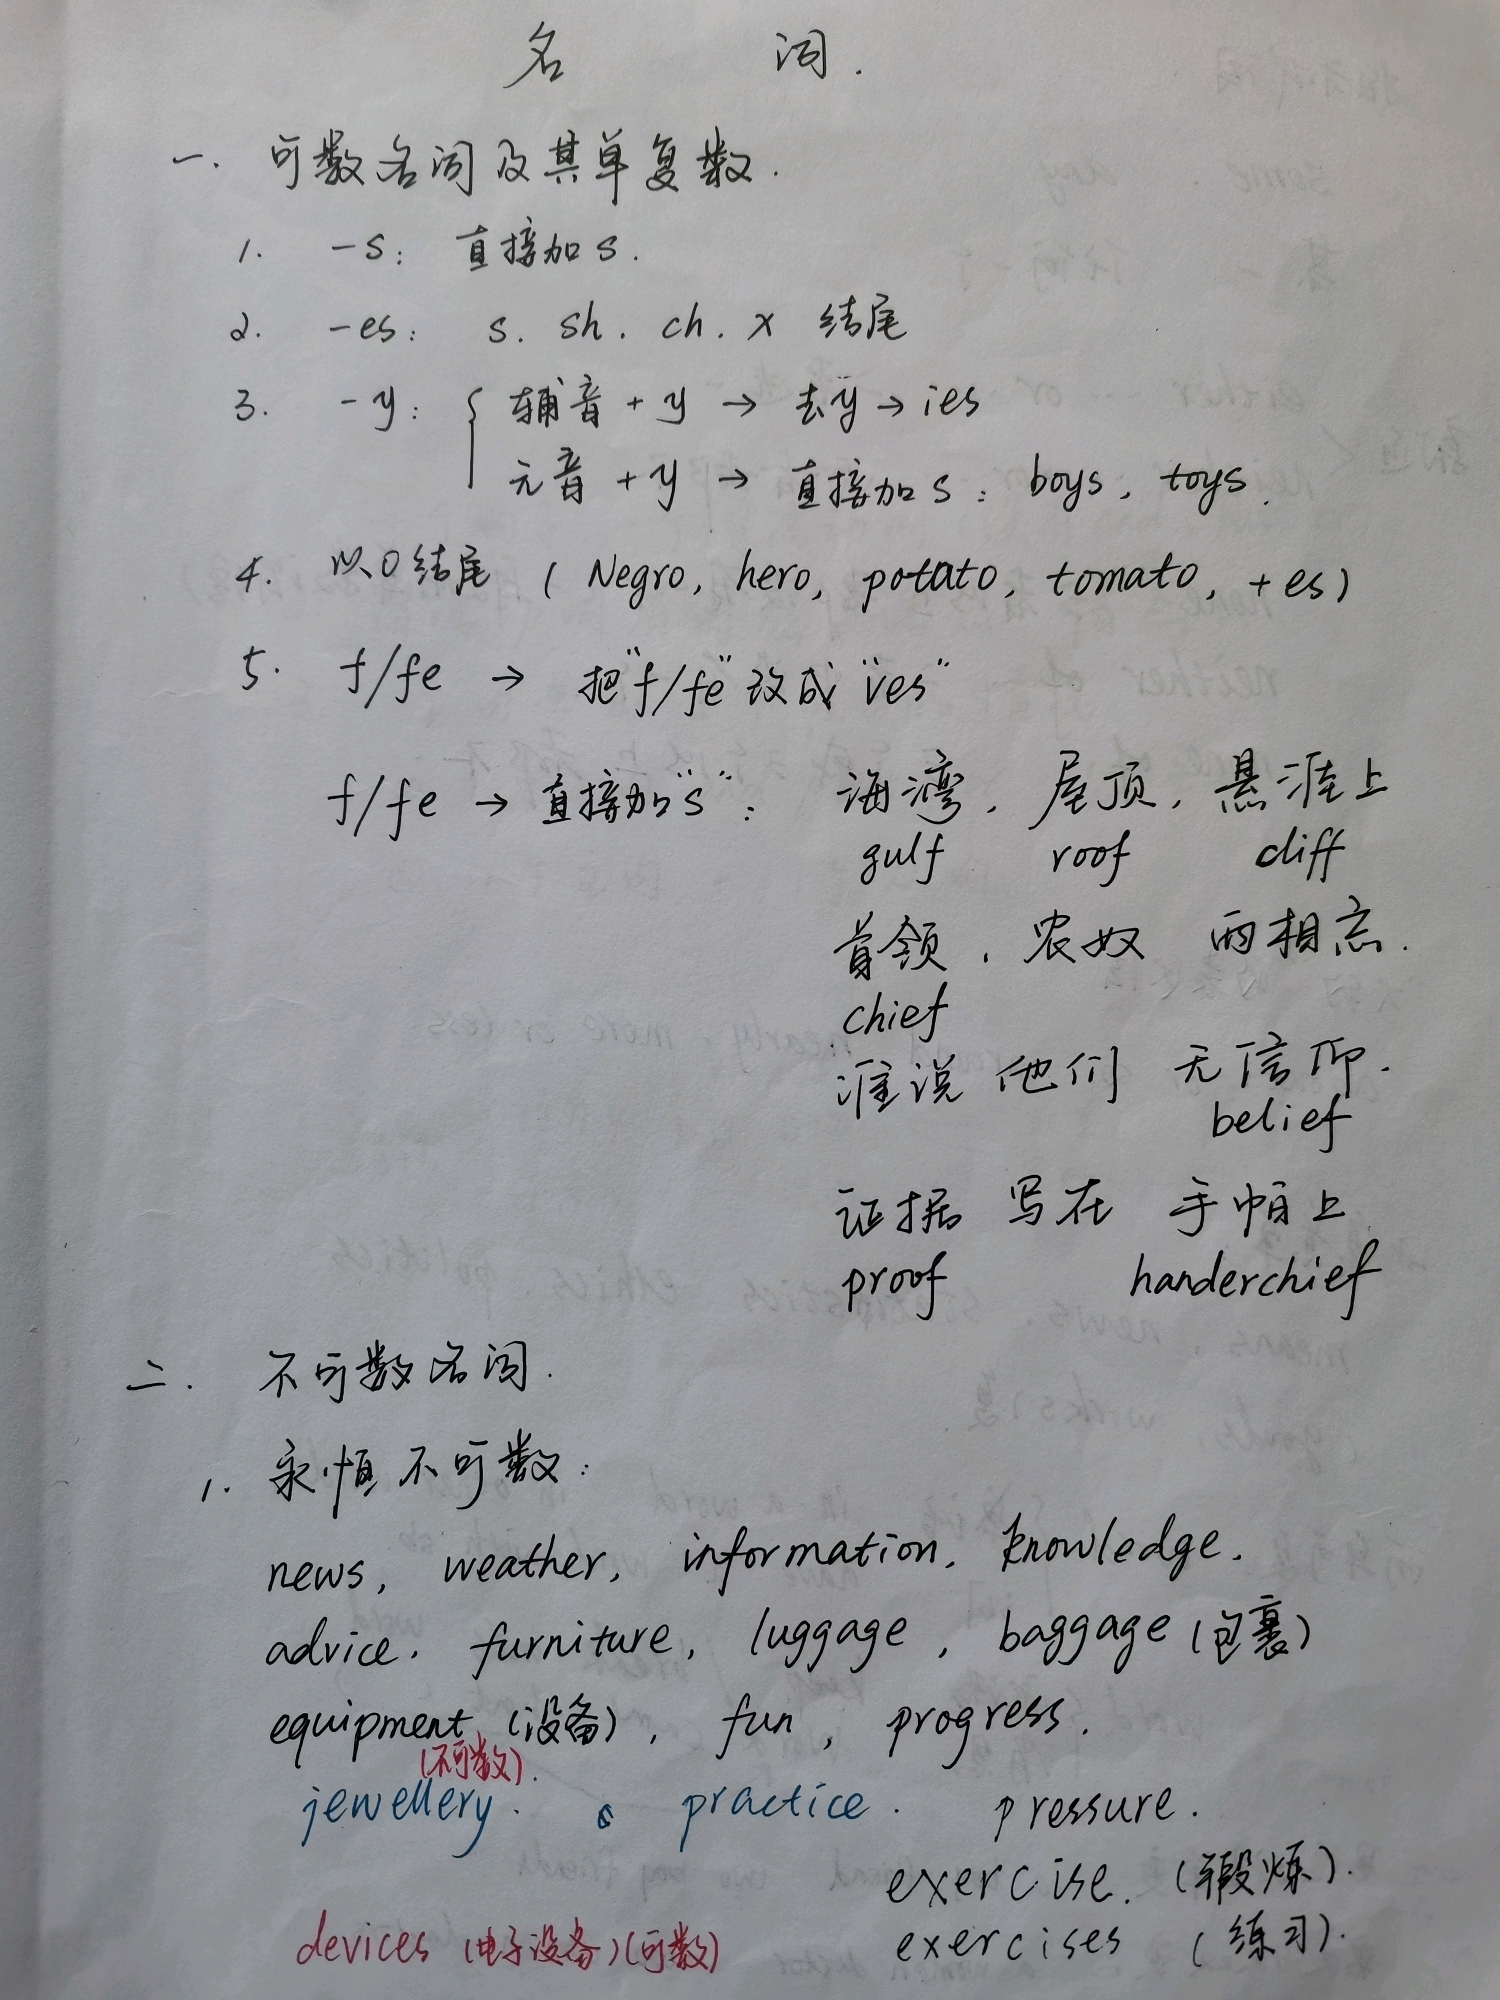 名 词.
一. 可数名词及其单复数.
1. -s: 直接加s.
2. -es: s. sh. ch. x 结尾
3. -y: { 辅音 + y → 去y → ies
元音 + y → 直接加s: boys, toys.
4. 以o结尾 ( Negro, hero, potato, tomato, + es)
5. f/fe → 把"f/fe"改成"ves"
f/fe → 直接加"s": 海湾, 屋顶, 悬涯上
gulf roof cliff
首领, 农奴 两相忘.
chief
谁说 他们 无信仰.
belief
证据 写在 手帕上
proof handerchief
二. 不可数名词.
1. 永恒不可数:
news, weather, information, knowledge.
advice. furniture, luggage, baggage (包裹)
equipment (设备), fun, progress.
(不可数).
jewellery. practice. pressure.
exercise. (锻炼).
devices (电子设备)(可数) exercises (练习).